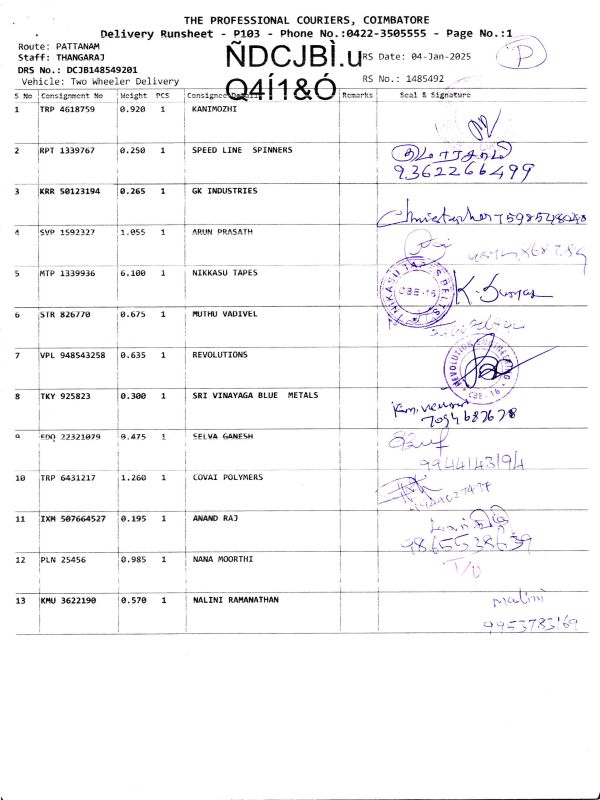 THE PROFESSIONAL COURIERS, COIMBATORE
Delivery Runsheet - P103 - Phone No.:0422-3505555 - Page No.:1
Route: PATTANAM
Staff: THANGARAJ
ÑDCJBÌ.u
RS Date: 04-Jan-2025
P
DRS No.: DCJB148549201
Vehicle: Two Wheeler Delivery
Q4Í1&Ó
RS No.: 1485492
S No Consignment No Weight PCS Consignee Details Remarks Seal & Signature
1 TRP 4618759 0.920 1 KANIMOZHI
2 RPT 1339767 0.250 1 SPEED LINE SPINNERS
9362266499
3 KRR 50123194 0.265 1 GK INDUSTRIES
4 SVP 1592327 1.055 1 ARUN PRASATH
5 MTP 1339936 6.100 1 NIKKASU TAPES
NIKASU TAPES BELTS CBE-16 K. Kumar
6 STR 826770 0.675 1 MUTHU VADIVEL
7 VPL 948543258 0.635 1 REVOLUTIONS
REVOLUTION ENGINEERING CBE-16
8 TKY 925823 0.300 1 SRI VINAYAGA BLUE METALS
7094687678
9 EDQ 22321079 0.475 1 SELVA GANESH
9944143194
10 TRP 6431217 1.260 1 COVAI POLYMERS
11 IXM 507664527 0.195 1 ANAND RAJ
9865538639
12 PLN 25456 0.985 1 NANA MOORTHI
T/D
13 KMU 3622190 0.570 1 NALINI RAMANATHAN
Malini
9953783169